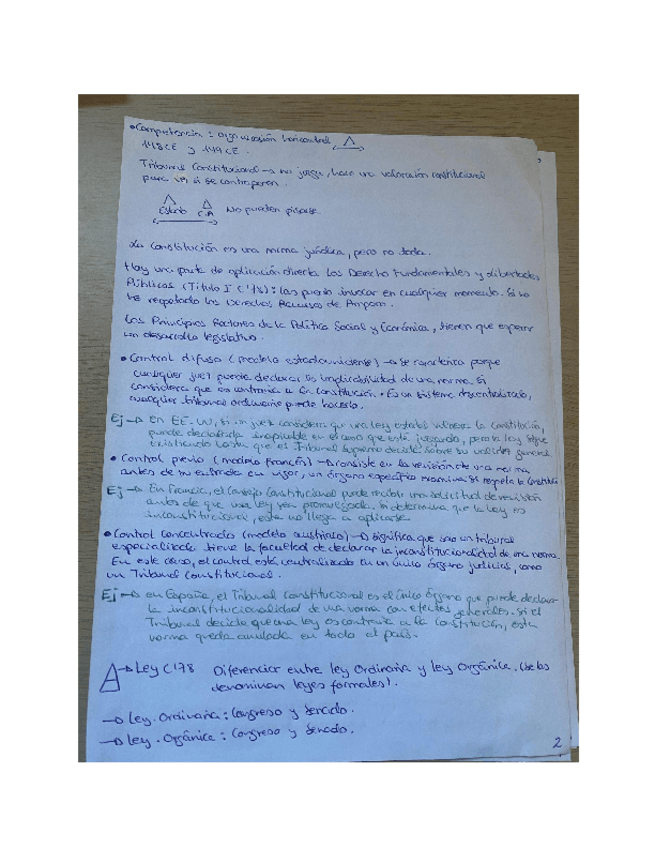 • Competencia: organización horizontal
148 CE y 149 CE.
Tribunal Constitucional → no juzga, hace una valoración constitucional
para ver si se contraponen.
Estado C.A No pueden pisarse.
La Constitución es una norma jurídica, pero no toda.
Hay una parte de aplicación directa los Derecho Fundamentales y Libertades
Públicas (Título I C'78): las puedo invocar en cualquier momento. Si no
he respetado los Derechos Recursos de Amparo.
Los Principios Rectores de la Política Social y Económica, tienen que esperar
un desarrollo legislativo.
• Control difuso (modelo estadounidense) → se caracteriza porque
cualquier juez puede declarar la inaplicabilidad de una norma si
considera que es contraria a la Constitución. Es un sistema descentralizado,
cualquier tribunal ordinario puede hacerlo.
Ej → En EE.UU, si un juez considera que una ley estatal vulnera la Constitución,
puede declararla inaplicable en el caso que está juzgando, pero la ley sigue
existiendo hasta que el Tribunal Supremo decida sobre su validez general.
• Control previo (modelo francés) → consiste en la revisión de una norma
antes de su entrada en vigor, un órgano específico examina si respeta la Constitución
Ej → En Francia, el Consejo Constitucional puede recibir una solicitud de revisión
antes de que una ley sea promulgada. Si determina que la ley es
inconstitucional, esta no llega a aplicarse.
• Control concentrado (modelo austriaco) → significa que solo un tribunal
especializado tiene la facultad de declarar la inconstitucionalidad de una norma.
En este caso, el control está centralizado en un único órgano judicial, como
un Tribunal Constitucional.
Ej → en España, el Tribunal Constitucional es el único órgano que puede declarar
la inconstitucionalidad de una norma con efectos generales. Si el
Tribunal decide que una ley es contraria a la Constitución, esta
norma queda anulada en todo el país.
→ Ley C'78 Diferenciar entre ley Ordinaria y ley Orgánica. (se las
denominan leyes formales).
→ Ley. Ordinaria: Congreso y Senado.
→ Ley. Orgánica: Congreso y Senado.
2